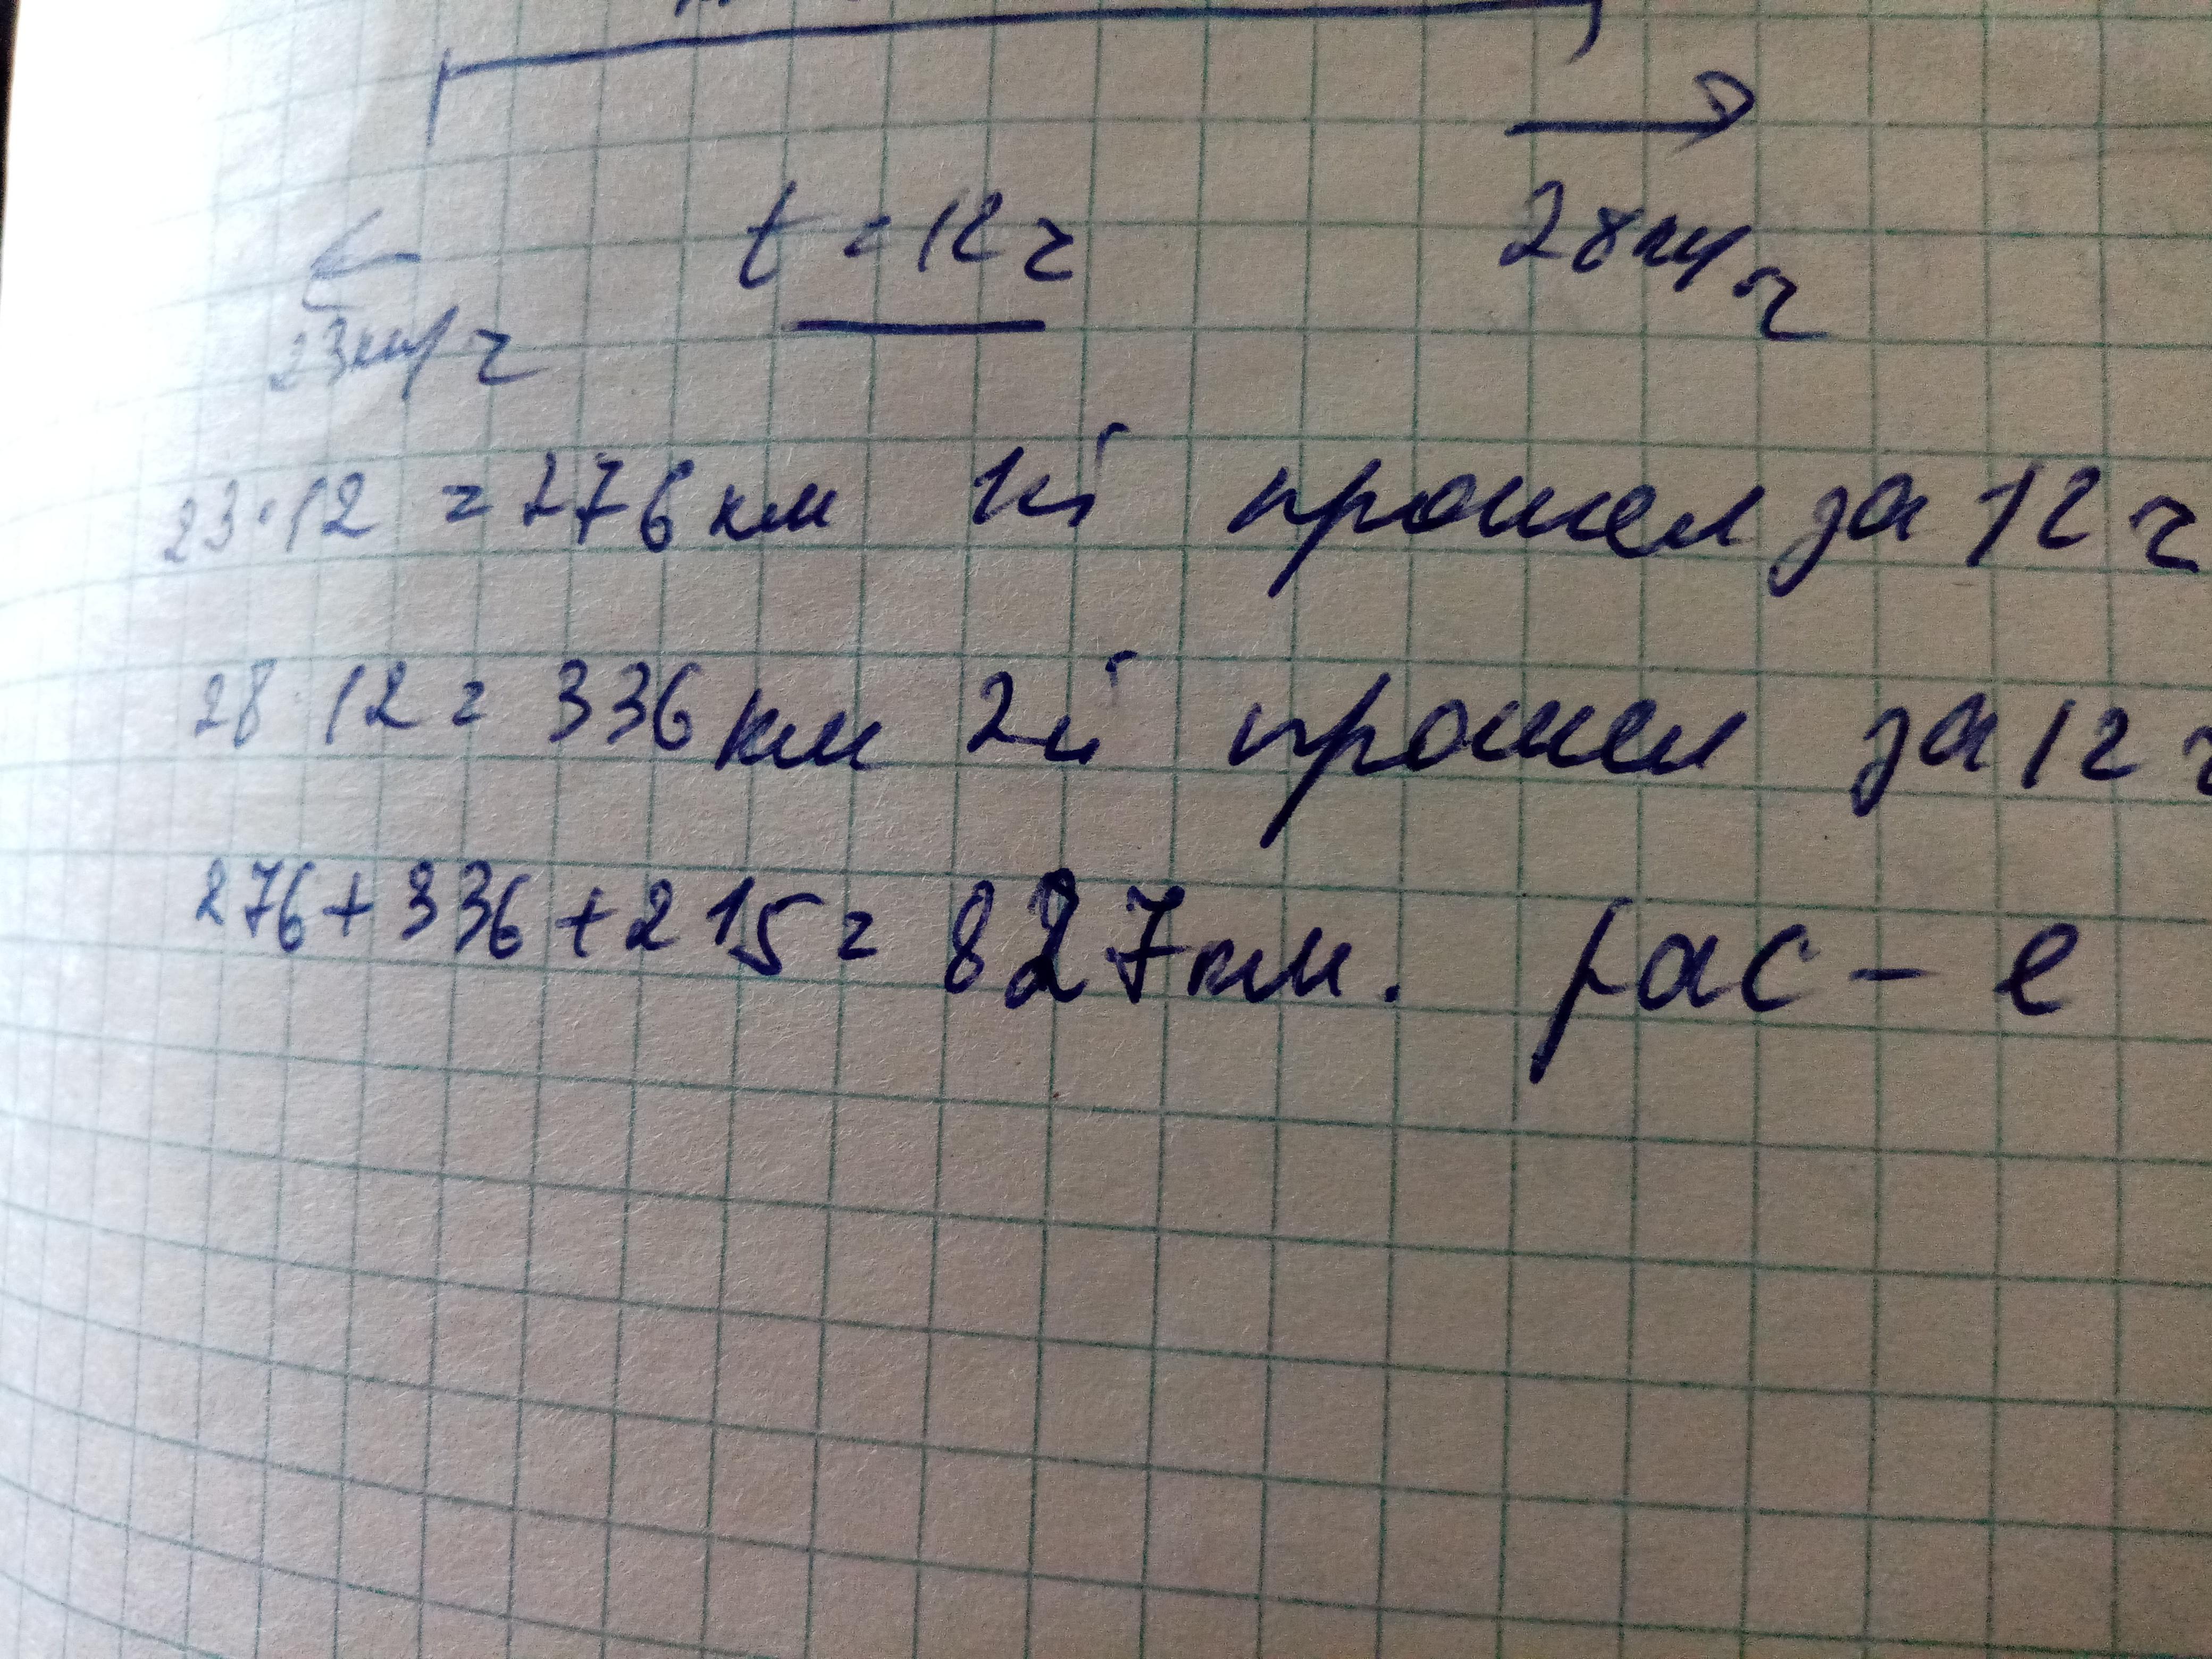 t = 12 ч
28 км/ч
23 км/ч
23·12 = 276 км 1й прошел за 12 ч
28·12 = 336 км 2й прошел за 12 ч
276+336+215= 827 км. рас-е